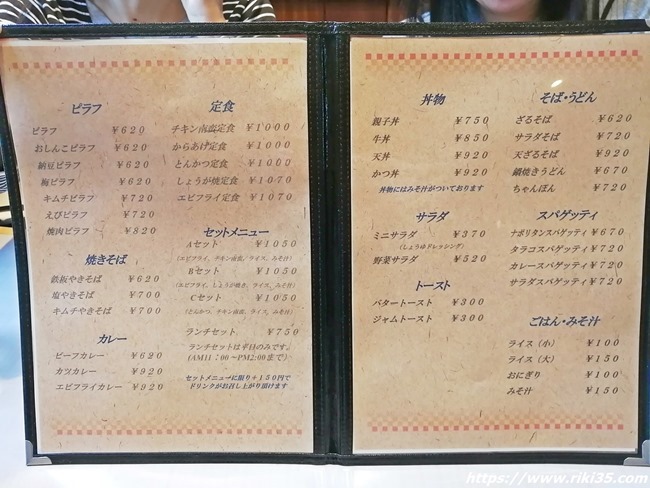 ピラフ
ピラフ ￥620
おしんこピラフ ￥620
納豆ピラフ ￥620
梅ピラフ ￥620
キムチピラフ ￥720
えびピラフ ￥720
焼肉ピラフ ￥820
焼きそば
鉄板やきそば ￥620
塩やきそば ￥700
キムチやきそば ￥700
カレー
ビーフカレー ￥620
カツカレー ￥920
エビフライカレー ￥920
定食
チキン南蛮定食 ￥1000
からあげ定食 ￥1000
とんかつ定食 ￥1000
しょうが焼定食 ￥1070
エビフライ定食 ￥1070
セットメニュー
Aセット ￥1050
(エビフライ、チキン南蛮、ライス、みそ汁)
Bセット ￥1050
(エビフライ、しょうが焼き、ライス、みそ汁)
Cセット ￥1050
(とんかつ、チキン南蛮、ライス、みそ汁)
ランチセット ￥750
ランチセットは平日のみです。
(AM11：00～PM2:00まで)
セットメニューに限り＋150円で
ドリンクがお召し上がり頂けます
丼物
親子丼 ￥750
牛丼 ￥850
天丼 ￥920
かつ丼 ￥920
丼物にはみそ汁がついております
サラダ
ミニサラダ ￥370
(しょうゆドレッシング)
野菜サラダ ￥520
トースト
バタートースト ￥300
ジャムトースト ￥300
そば・うどん
ざるそば ￥620
サラダそば ￥720
天ざるそば ￥920
鍋焼きうどん ￥670
ちゃんぽん ￥720
スパゲッティ
ナポリタンスパゲッティ ￥670
タラコスパゲッティ ￥720
カレースパゲッティ ￥720
サラダスパゲッティ ￥720
ごはん・みそ汁
ライス（小） ￥100
ライス（大） ￥150
おにぎり ￥100
みそ汁 ￥150
https://www.riki35.com